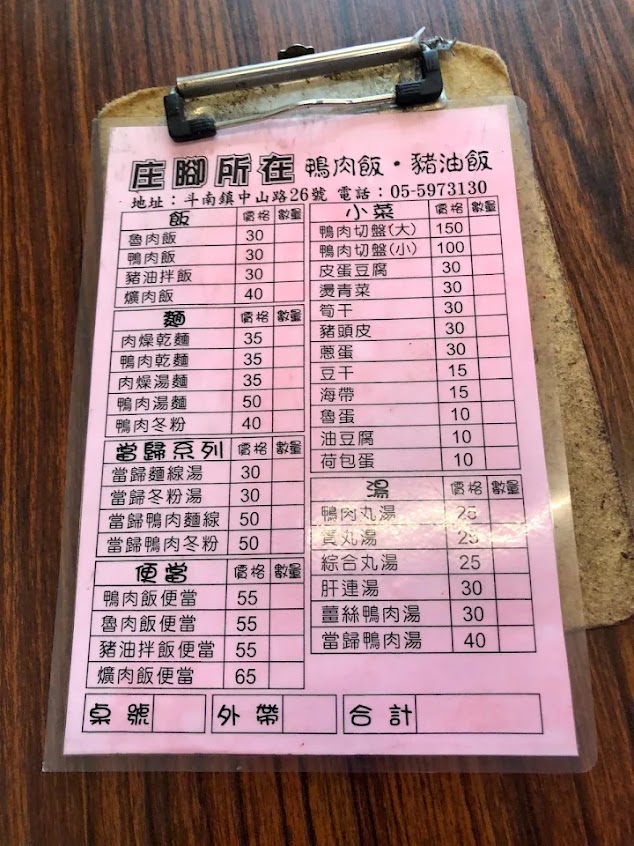 庄腳所在 鴨肉飯·豬油飯
地址：斗南鎮中山路26號 電話：05-5973130
飯 價格 數量
魯肉飯 30
鴨肉飯 30
豬油拌飯 30
爌肉飯 40
麵 價格 數量
肉燥乾麵 35
鴨肉乾麵 35
肉燥湯麵 35
鴨肉湯麵 50
鴨肉冬粉 40
當歸系列 價格 數量
當歸麵線湯 30
當歸冬粉湯 30
當歸鴨肉麵線 50
當歸鴨肉冬粉 50
便當 價格 數量
鴨肉飯便當 55
魯肉飯便當 55
豬油拌飯便當 55
爌肉飯便當 65
小菜 價格 數量
鴨肉切盤(大) 150
鴨肉切盤(小) 100
皮蛋豆腐 30
燙青菜 30
筍干 30
豬頭皮 30
蔥蛋 30
豆干 15
海帶 15
魯蛋 10
油豆腐 10
荷包蛋 10
湯 價格 數量
鴨肉丸湯 25
丸湯 25
綜合丸湯 25
肝連湯 30
薑絲鴨肉湯 30
當歸鴨肉湯 40
桌號 外帶 合計